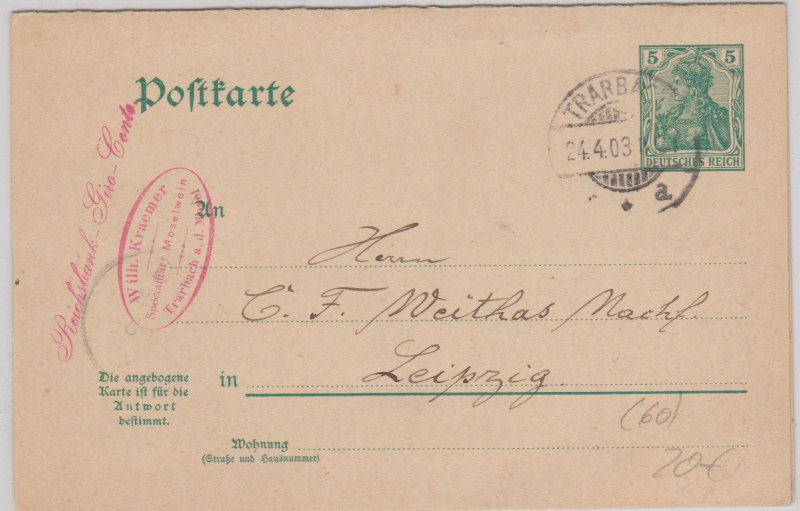 Postkarte
5 5
DEUTSCHES REICH
TRARBA
24.4.03
a
Reichsbank-Giro-Conto
Wilh. Kraemer
Spezialität: Moselwein
Trarbach a. d. Mosel
An
Herrn
C. F. Weithas Nachf.
in Leipzig.
Die angebogene
Karte ist für die
Antwort
bestimmt.
Wohnung
(Straße und Hausnummer)
(60)
20€